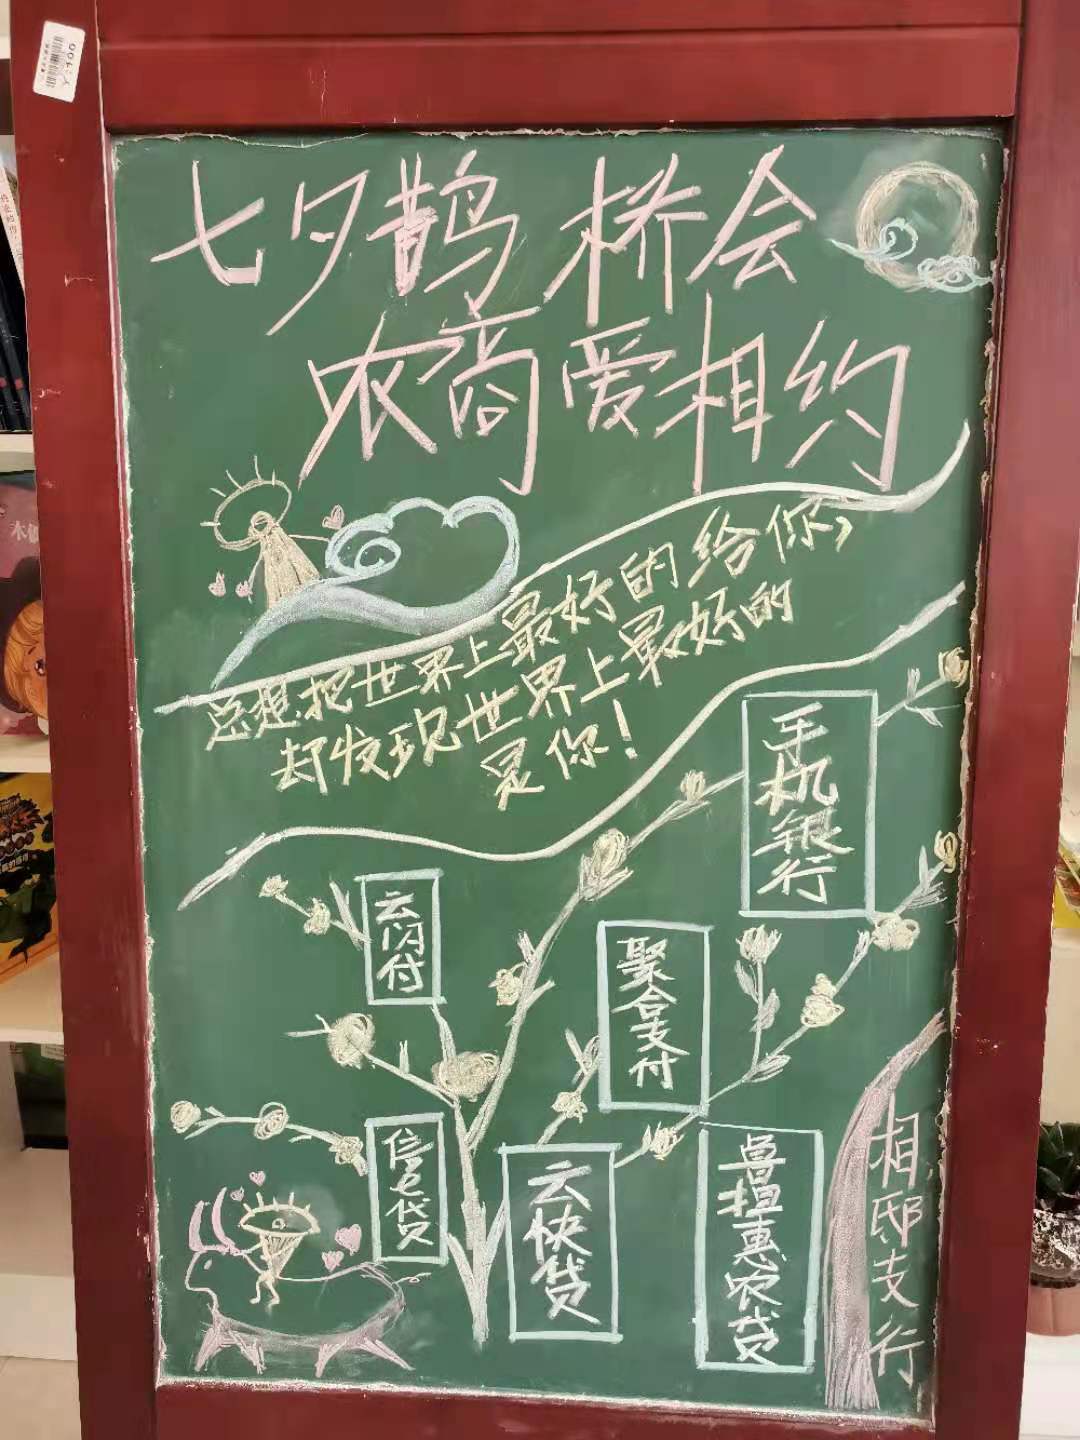 七夕鹊桥会
农商爱相约
总想把世界上最好的给你,
却发现世界上最好的
是你!
手机银行
云闪付
聚合支付
信e贷
云快贷
鲁担惠农贷
相邸支行